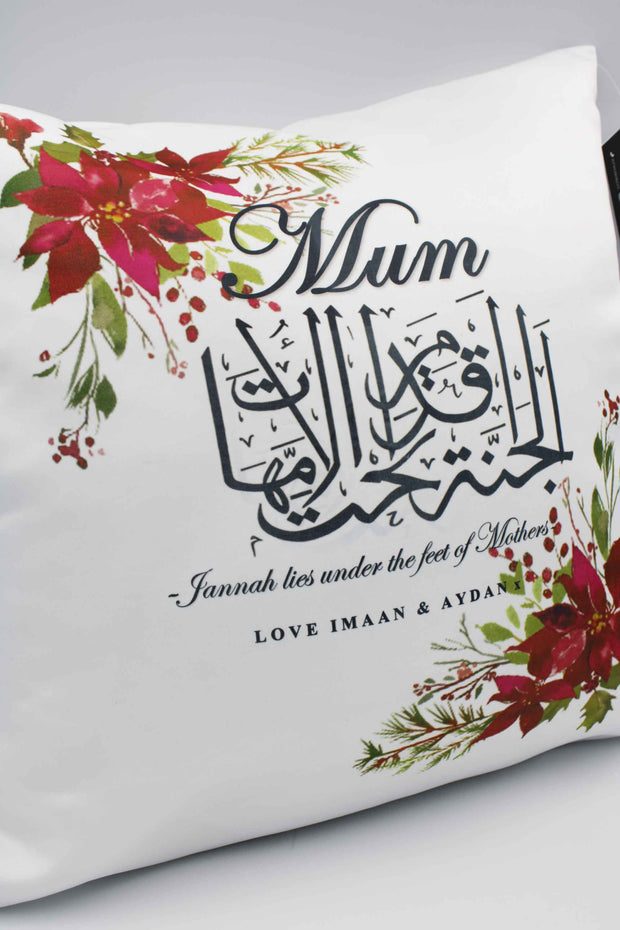 Mum
الجنّة تحت أقدام الأمّهات
-Jannah lies under the feet of Mothers-
LOVE IMAAN & AYDAN x